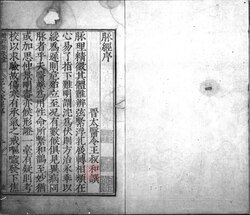 脈經序
晉太醫令王叔和撰
脈理精微其體難辨弦緊浮芤展轉相類在
心易了指下難明謂沉爲伏則方治永乖以
緩爲遲則危殆立至況有數候俱見異病同
脈者乎夫醫藥爲用性命所繫和鵲至妙猶
或加思仲景明審亦候形證一毫有疑則考
校以求驗故傷寒有承氣之戒嘔噦發下焦